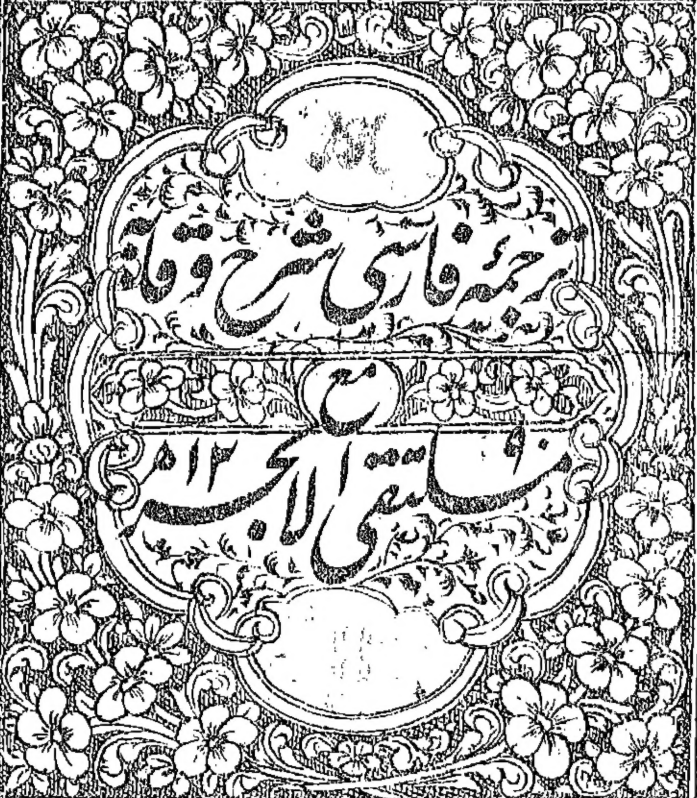 ترجمۂ فارسی شرح وقایه
مع
ملتقی الابحر